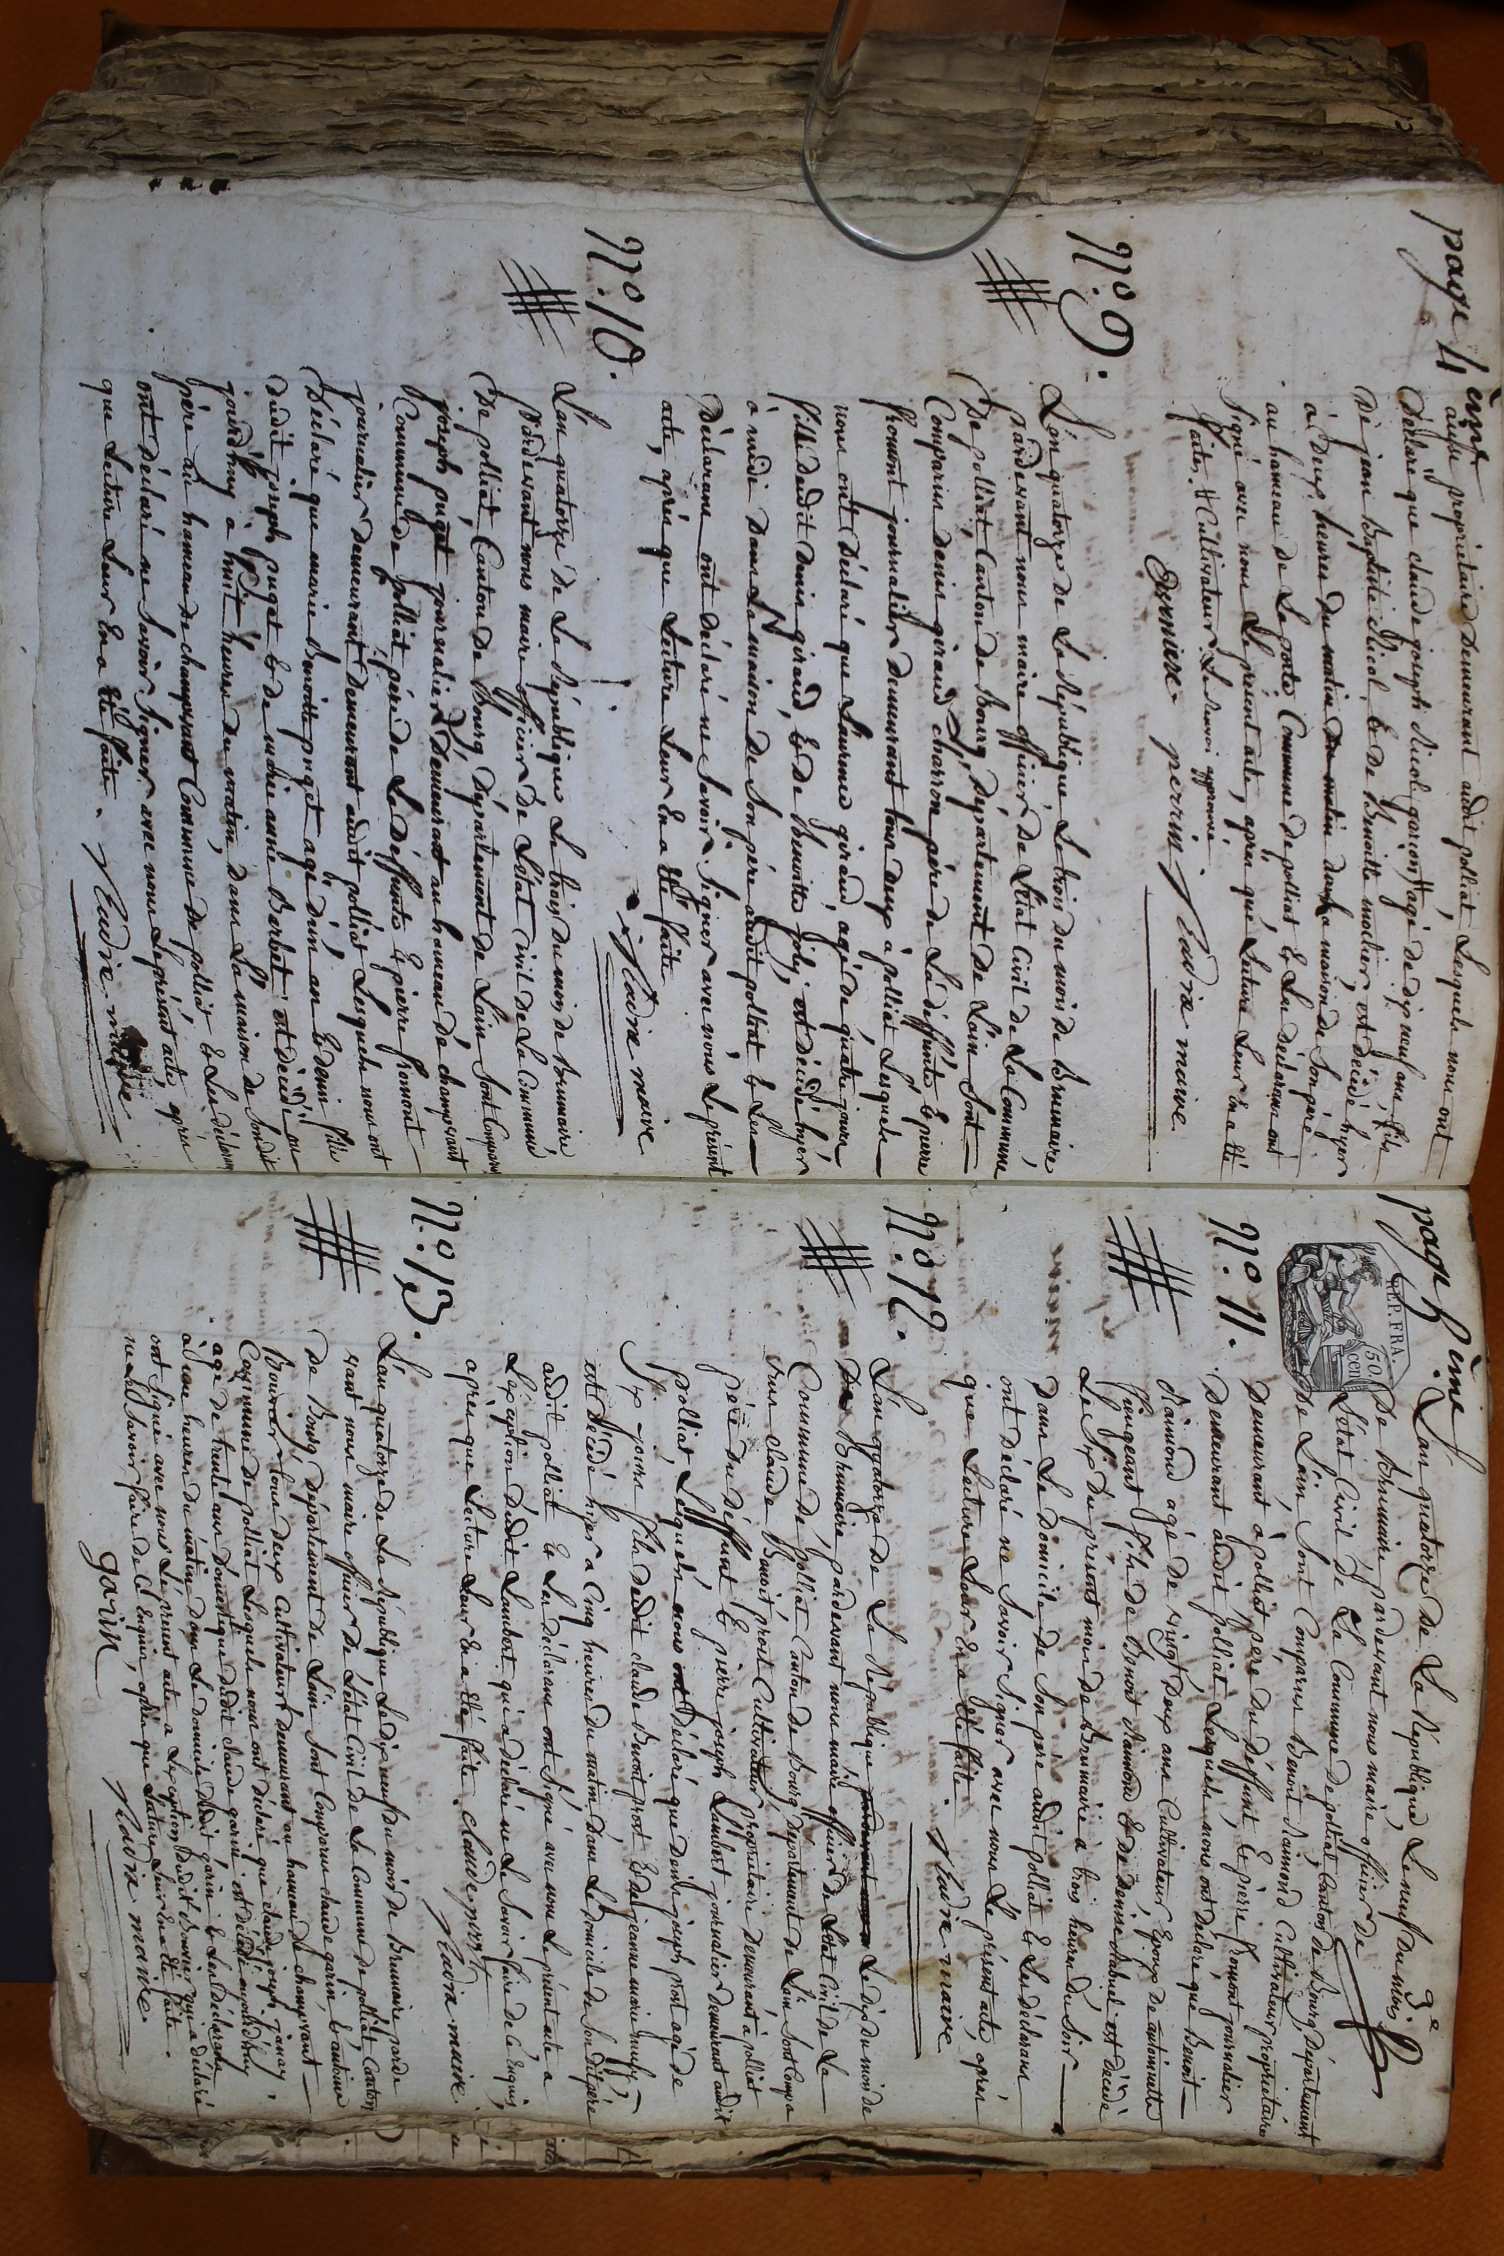 page 4ème
audit propriétaire demeurant audit polliat, Lesquels nous ont
Déclaré que claude joseph Nicol garçon agé de dix neuf ans, fils
de jean Baptiste Nicol, & de Benoitte est décédé hyer
à Deux heures du matin dans la maison de Son père
au hameau de Commune de polliat & Les déclarans ont
Signé avec nous Le présent acte, après que Lecture Leur En a été
faite. # Cultivateur Le Renvoi approuvé
perrin maire
N.º 9.
L'an quatorze de La République Le trois du mois de Brumaire,
pardevant nous maire officier de L'état Civil de La Commune
De polliat, Canton de Bourg, Département de L'ain Sont
Comparus denis giraud charron, père de La déffunte & pierre
fromont journalier demeurant tous deux à polliat Lesquels
nous ont déclaré que Laurence giraud, agé de quatre jours
fille dudit denis giraud, & de Benoitte joly, est décédé hyer
à midi Dans La maison de Son père audit polliat & Les
Déclarans ont déclaré ne Savoir Signer avec nous Le présent
acte, après que Lecture Leur En a été faite
maire
N.º 10.
L'an quatorze de La République Le trois du mois de Brumaire,
pardevant nous maire officier de L'état Civil de La Commune
De polliat, Canton de Bourg, Département de L'ain Sont Comparus
joseph puget journalier Demeurant au hameau de champvant
Commune de polliat, père de La Déffunte & pierre fromont
journalier demeurant audit polliat Lesquels nous ont
Déclaré que marie Benoitte puget agé d'un an & Demi fille
Dudit joseph puget & de marie anne Berbat est décédé au
jourdhuy à huit heures du matin, dans La maison de Son dit
père au hameau de champvant Commune de polliat & Les déclarans
ont déclaré ne Savoir Signer avec nous Le présent acte, après
que Lecture Leur En a été faite.
maire
page 5ème
REP. FRA.
50 cen
N.º 11.
L'an quatorze de La République, Le neuf du mois
De Brumaire, pardevant nous maire officier de
L'état Civil de La Commune de polliat Canton de Bourg, Département
De L'ain Sont Comparus Benoit Daimond Cultivateur propriétaire
Demeurant à polliat père du Déffunt & pierre fromont journalier
Demeurant audit polliat Lesquels nous ont déclaré que Benoit
Daimond agé de vingt Deux ans Cultivateur Epoux de antoinette
fougeant fils de Benoit Daimond & de Denise est décédé
Le Six du présent mois de Brumaire à trois heures du Soir
Dans Le Domicile de Son père audit polliat & Les déclarans
ont déclaré ne Savoir Signer avec nous Le présent acte, après
que Lecture Leur En a été faite.
maire
N.º 12.
L'an quatorze de La République Le dix du mois de
Brumaire pardevant nous maire officier de L'état Civil de La
Commune de polliat, Canton de Bourg Département de L'ain Sont Compa
rus claude Benoit prost Cultivateur propriétaire Demeurant à polliat
père du déffunt & pierre joseph Lambert journalier demeurant audit
polliat, Lesquels nous ont déclaré que Denis joseph prost agé de
Six jours fils dudit claude Benoit prost & de jeanne marie
est Décédé hyer à Cinq heures du matin, dans Le Domicile de Son dit père
audit polliat & Les déclarans ont Signé avec nous Le présent acte à
L'exception dudit Lambert qui a déclaré ne Le Savoir faire de Ce Enquis,
après que Lecture Leur En a été faite. claude prost
maire
N.º 13.
L'an quatorze de La République Le dix neuf du mois de Brumaire parde
vant nous maire officier de L'état Civil de La Commune de polliat Canton
De Bourg Département de L'ain Sont Comparus claude garin & antoine
Bouvier tous deux Cultivateurs demeurant au hameau de champvant
Commune de polliat Lesquels nous ont déclaré que claude joseph
agé de trente ans Domestique dudit claude garin, est décédé aujourdhuy
à heures du matin dans Le domicile dudit garin & Les déclarans
ont Signé avec nous Le présent acte à L'exception Dudit Bouvier qui a déclaré
ne Le Savoir faire de Ce Enquis, après que Lecture Leur En a été faite.
garin
maire